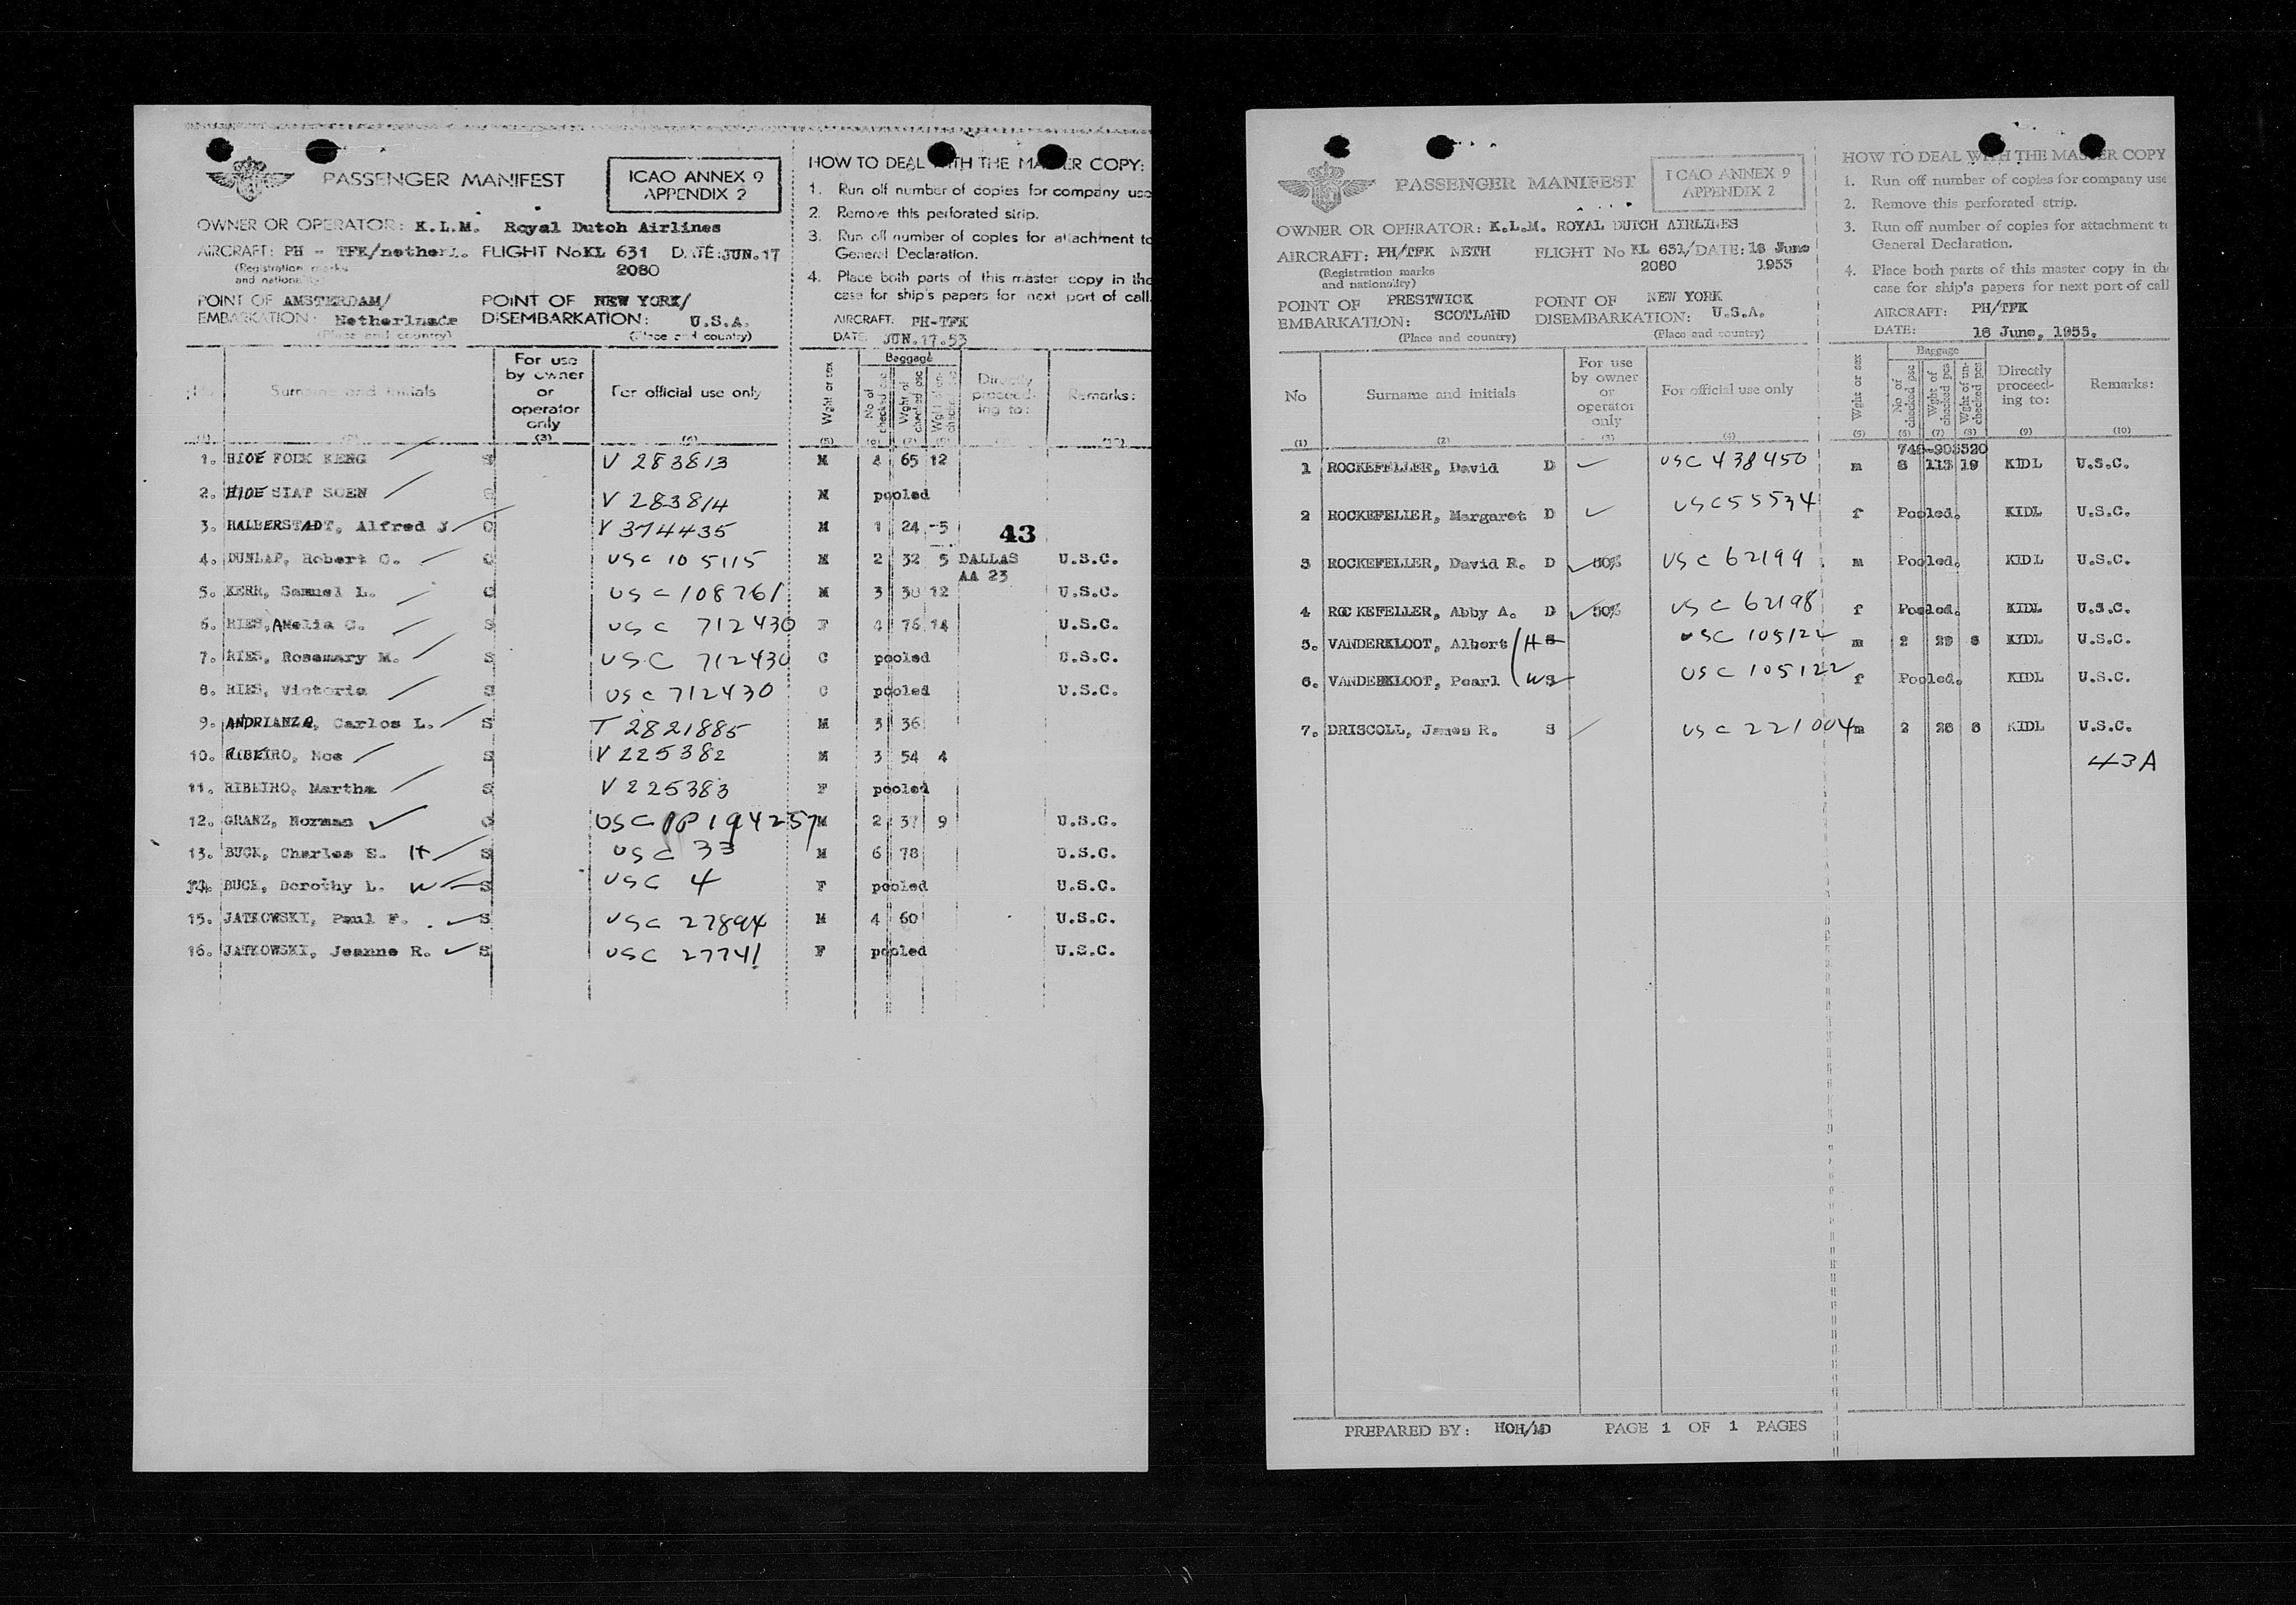 PASSENGER MANIFEST
ICAO ANNEX 9
APPENDIX 2
OWNER OR OPERATOR: K.L.M. Royal Dutch Airlines
AIRCRAFT: PH - TFK/netherl. FLIGHT No KL 631 DATE: JUN.17
(Registration marks
and nationality)
2080
POINT OF AMSTERDAM/ POINT OF NEW YORK/
EMBARKATION: Netherlnads DISEMBARKATION: U.S.A.
(Place and country) (Place and country)
HOW TO DEAL WITH THE MASTER COPY:
1. Run off number of copies for company use
2. Remove this perforated strip.
3. Run off number of copies for attachment to
General Declaration.
4. Place both parts of this master copy in the
case for ship's papers for next port of call.
AIRCRAFT: PH-TFK
DATE JUN.17.53
No Surname and initials For use by owner or operator only For official use only Wght or sex Baggage No of checked psc Wght of checked psc Directly proceed-ing to: Remarks:
(3) (4) (5) (6) (7) (8) (10)
1. HIOE FOEK KENG S V 283813 M 4 65 12
2. HIOE SIAT SOEN S V 283814 M pooled
3. HALBERSTADT, Alfred J C V 374435 M 1 24 -5
43
4. DUNLAP, Robert C. C USC 105115 M 2 32 5 DALLAS U.S.C.
AA 23
5. KERR, Samuel L. C USC 108761 M 3 30 12 U.S.C.
6. RIES, Amelia C. S USC 712430 F 4 76 14 U.S.C.
7. RIES, Rosemary M. S USC 712430 C pooled U.S.C.
8. RIES, Victoria S USC 712430 C pooled U.S.C.
9. ANDRIANZA, Carlos L. S T 2821885 M 3 36
10. RIBEIRO, Noe S V 225382 M 3 54 4
11. RIBEIRO, Martha S V 225383 F pooled
12. GRANZ, Norman C USC PP 194257 M 2 37 9 U.S.C.
13. BUCK, Charles E. H S USC 33 M 6 78 U.S.C.
14. BUCK, Dorothy L. W S USC 4 F pooled U.S.C.
15. JATKOWSKI, Paul F. S USC 27894 M 4 60 U.S.C.
16. JATKOWSKI, Jeanne R. S USC 27741 F pooled U.S.C.
PASSENGER MANIFEST
ICAO ANNEX 9
APPENDIX 2
OWNER OR OPERATOR: K.L.M. ROYAL DUTCH AIRLINES
AIRCRAFT: PH/TFK NETH FLIGHT No KL 631/ DATE: 18 June
(Registration marks
and nationality)
2080 1953
POINT OF PRESTWICK POINT OF NEW YORK
EMBARKATION: SCOTLAND DISEMBARKATION: U.S.A.
(Place and country) (Place and country)
HOW TO DEAL WITH THE MASTER COPY
1. Run off number of copies for company use
2. Remove this perforated strip.
3. Run off number of copies for attachment to
General Declaration.
4. Place both parts of this master copy in the
case for ship's papers for next port of call
AIRCRAFT: PH/TFK
DATE: 18 June, 1953.
No Surname and initials For use by owner or operator only For official use only Wght or sex Baggage No of checked psc Wght of checked pcs Wght of un-checked pcs Directly proceed-ing to: Remarks:
(1) (2) (3) (4) (5) (6) (7) (8) (9) (10)
1 ROCKEFELLER, David D USC 438450 m 8 113 19 KIDL U.S.C.
2 ROCKEFELLER, Margaret D USC 55534 f Pooled. KIDL U.S.C.
3 ROCKEFELLER, David R. D 50% USC 62199 m Pooled. KIDL U.S.C.
4 ROCKEFELLER, Abby A. D 50% USC 62198 f Pooled. KIDL U.S.C.
5. VANDERKLOOT, Albert H S USC 105122 m 2 29 6 KIDL U.S.C.
6. VANDERKLOOT, Pearl W S USC 105122 f Pooled. KIDL U.S.C.
7. DRISCOLL, James R. S USC 221004 m 2 28 8 KIDL U.S.C.
43A
PREPARED BY: HOH/MD PAGE 1 OF 1 PAGES